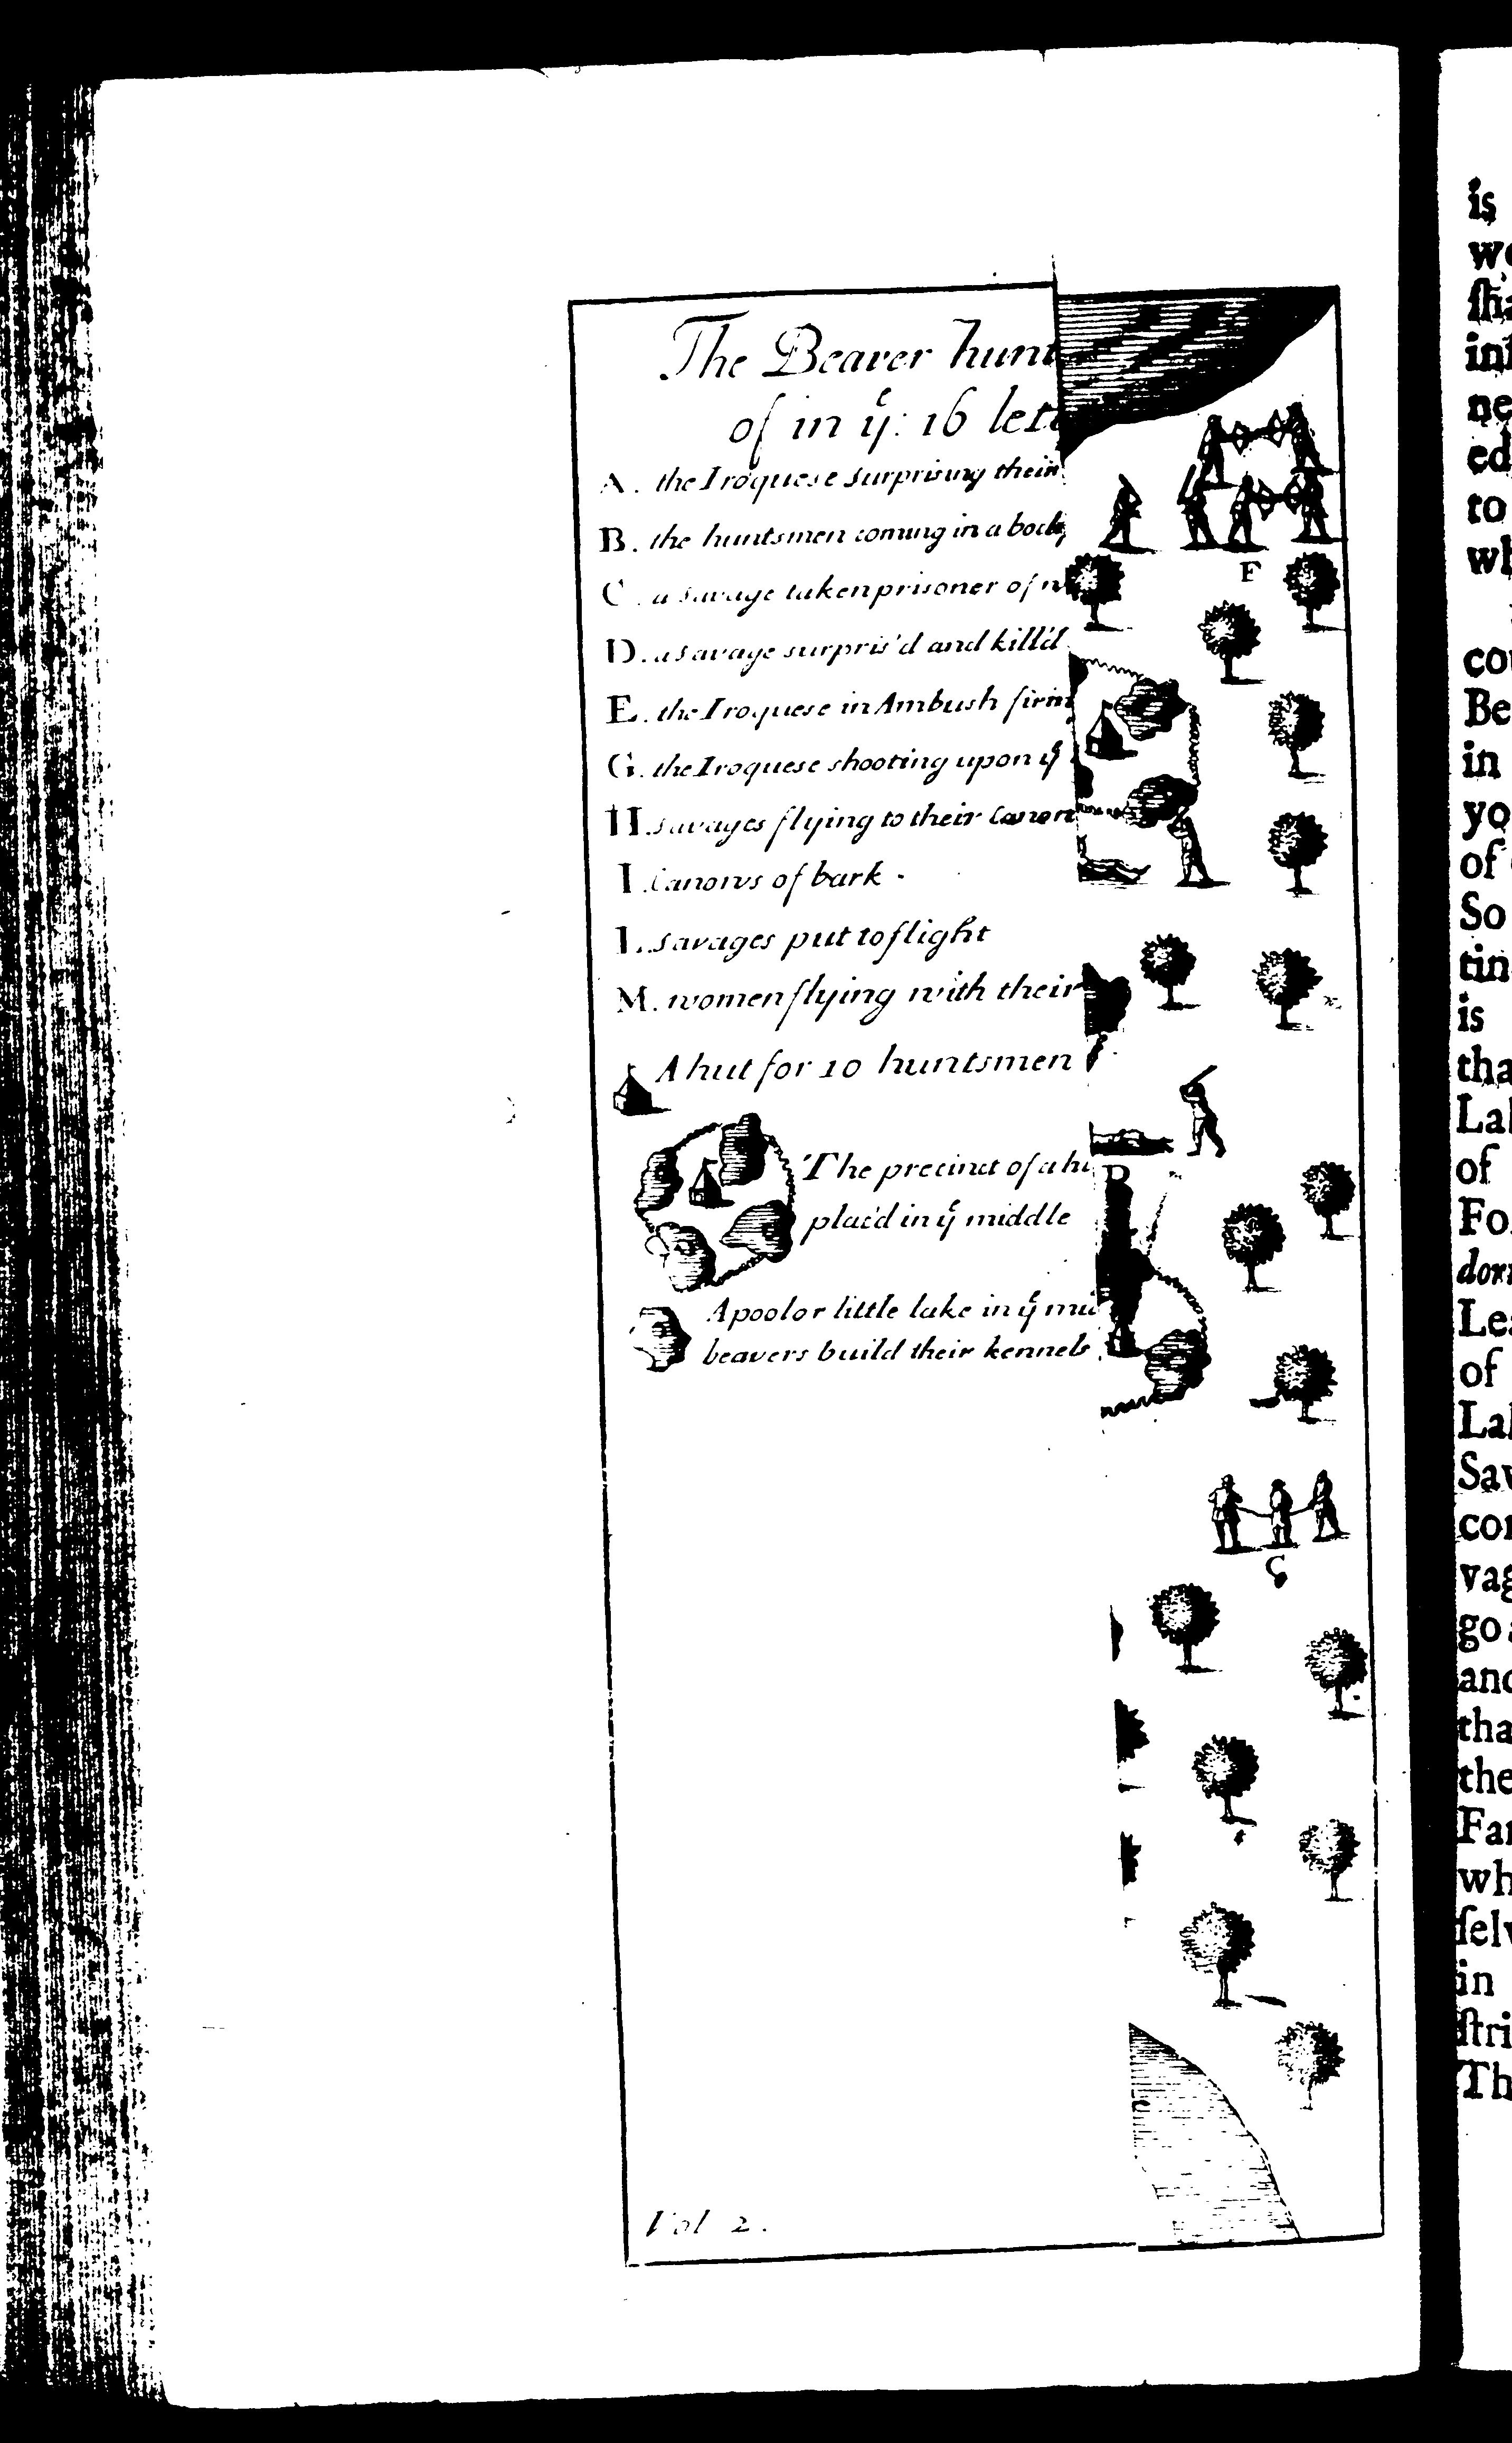 The Beaver hunt
of in yͤ: 16 lett
A. the Iroquese surprising their
B. the huntsmen coming in a body
C. a savage taken prisoner of
D. a savage surpris'd and kill'd
E. the Iroquese in Ambush firing
G. the Iroquese shooting upon yͤ
H. savages flying to their Canows
I. Canows of bark.
L. savages put to flight
M. women flying with their
A hut for 10 huntsmen
The precinct of a hu
plac'd in yͤ middle
A pool or little lake in yͤ mid
beavers build their kennels
Vol 2.
F
D
C
is
we
ſha
inf
ne
ed
to
wh
cou
Be
in
yo
of
So
tin
is
tha
Lak
of
Fo
dor
Lea
of
Lak
Sav
con
vag
go a
and
tha
the
Far
wh
ſelv
in
ſtri
Th